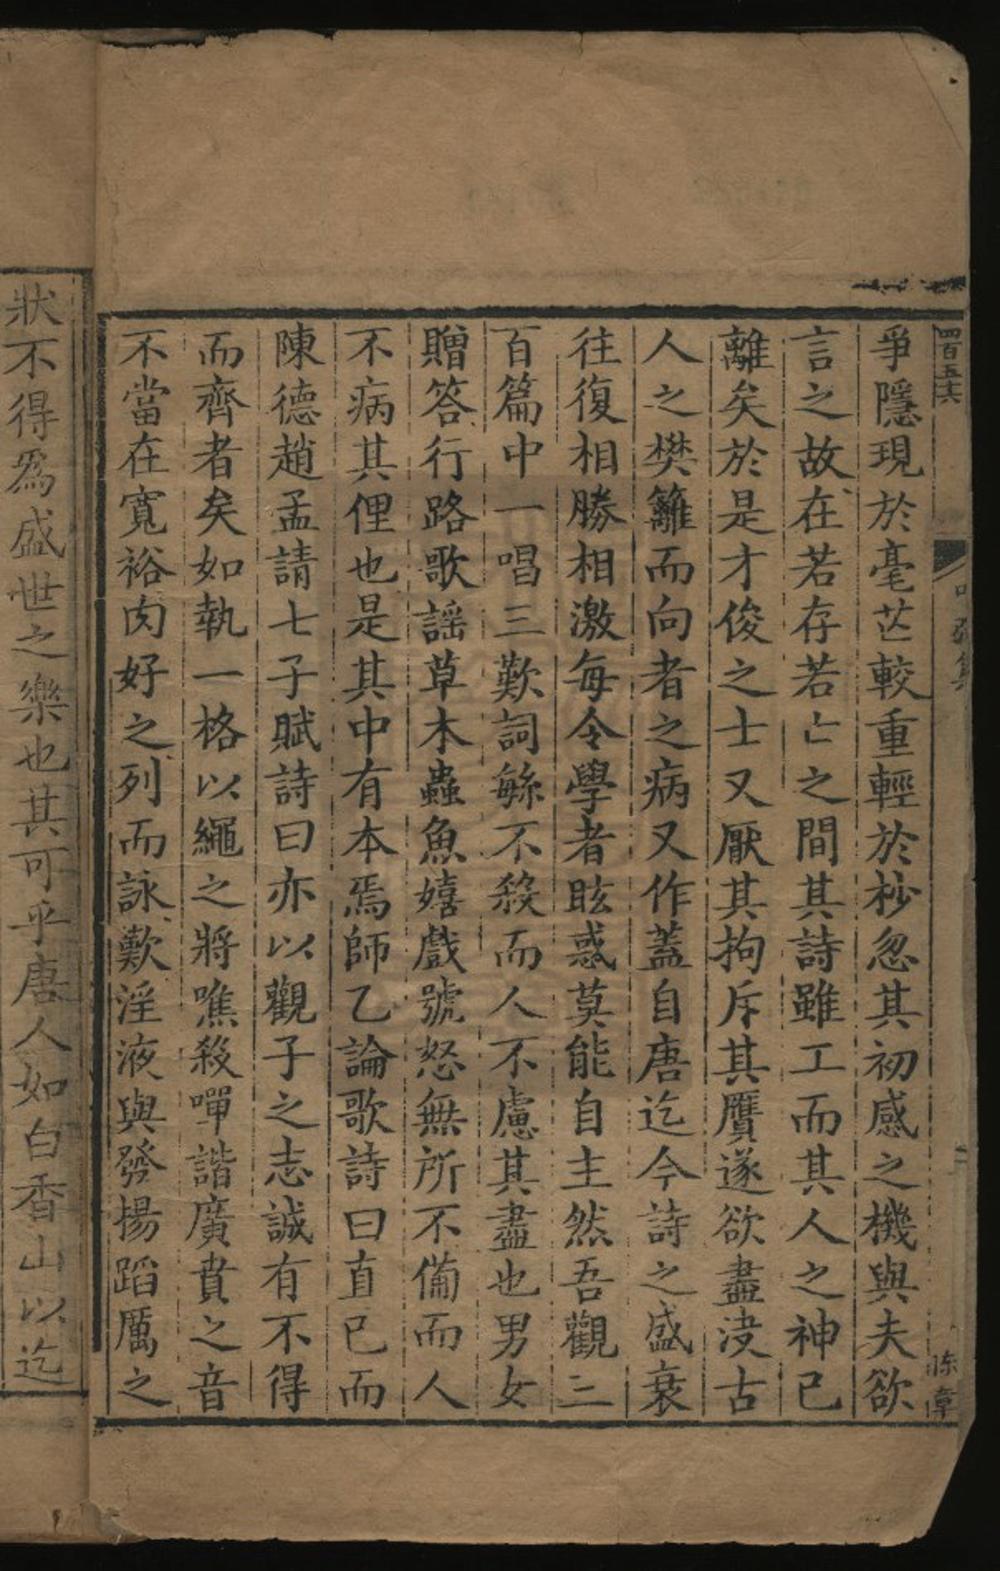 四百五十六
陈章
爭隱現於毫芒較重輕於杪忽其初感之機與夫欲
言之故在若存若亡之間其詩雖工而其人之神已
離矣於是才俊之士又厭其拘斥其贗遂欲盡決古
人之樊籬而向者之病又作蓋自唐迄今詩之盛衰
往復相勝相激每令學者眩惑莫能自主然吾觀三
百篇中一唱三歎詞緐不殺而人不慮其盡也男女
贈答行路歌謠草木蟲魚嬉戲號怒無所不備而人
不病其俚也是其中有本焉師乙論歌詩曰直已而
陳德趙孟請七子賦詩曰亦以觀子之志誠有不得
而齊者矣如執一格以繩之將噍殺嘽諧廣賁之音
不當在寬裕肉好之列而詠歎淫液與發揚蹈厲之
狀不得爲盛世之樂也其可乎唐人如白香山以迄